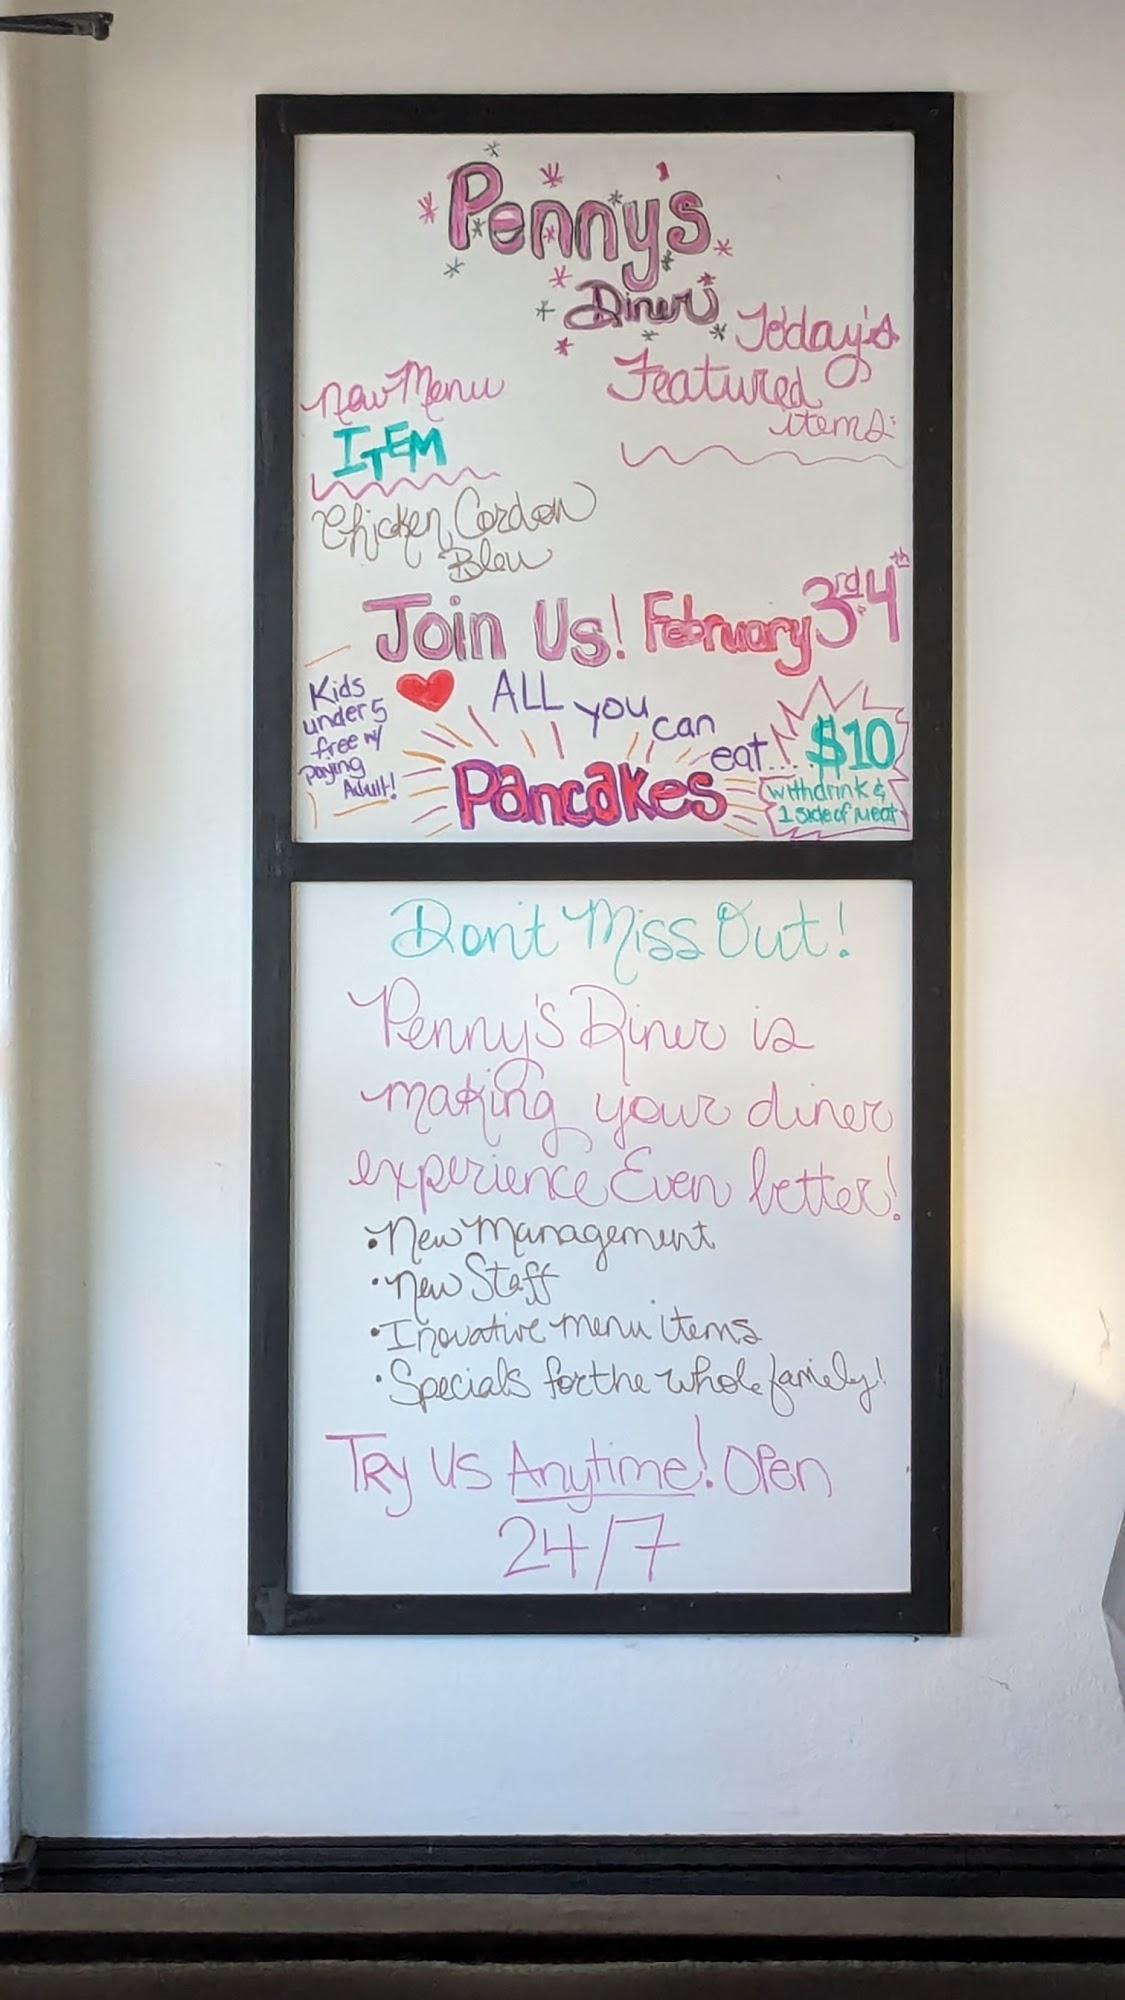 Penny's
Diner
Today's
Featured
items:
New Menu
ITEM
Chicken Cordon
Bleu
Join Us! February 3rd & 4th
Kids
under 5
free w/
paying
Adult!
ALL you can eat...
Pancakes
$10
with drink &
1 side of meat
Don't Miss Out!
Penny's Diner is
making your diner
experience Even better!
• New Management
• New Staff
• Inovative menu items
• Specials for the whole family!
Try Us Anytime! Open
24/7